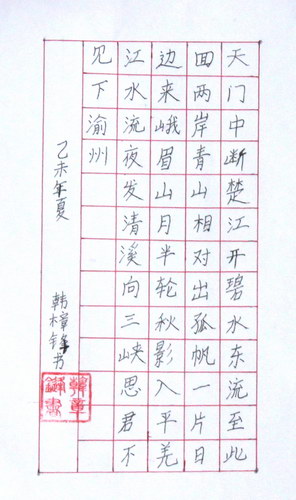 天门中断楚江开碧水东流至此
面两岸青山相对出孤帆一片日
边来峨眉山月半轮秋影入平羌
江水流夜发清溪向三峡思君不
见下渝州
乙未年夏 韩樟锋书